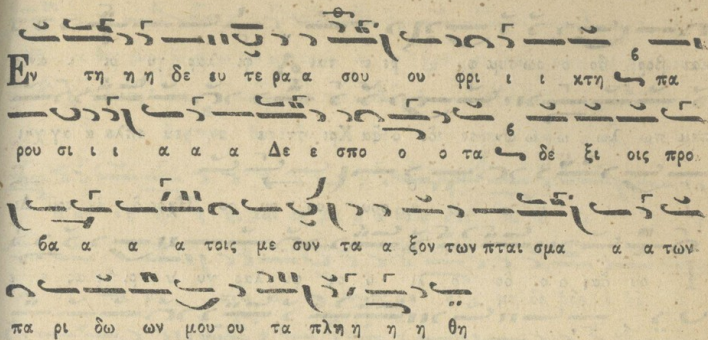 Εν τη η η δε ευ τε ρα α σου ου φρι ι ι κτη πα
ρου σι ι ι α α α Δε ε σπο ο ο τα δε ξι οις προ
βα α α α τοις με συν τα α ξον των πται σμα α α των
πα ρι δω ων μου ου τα πλη η η η θη